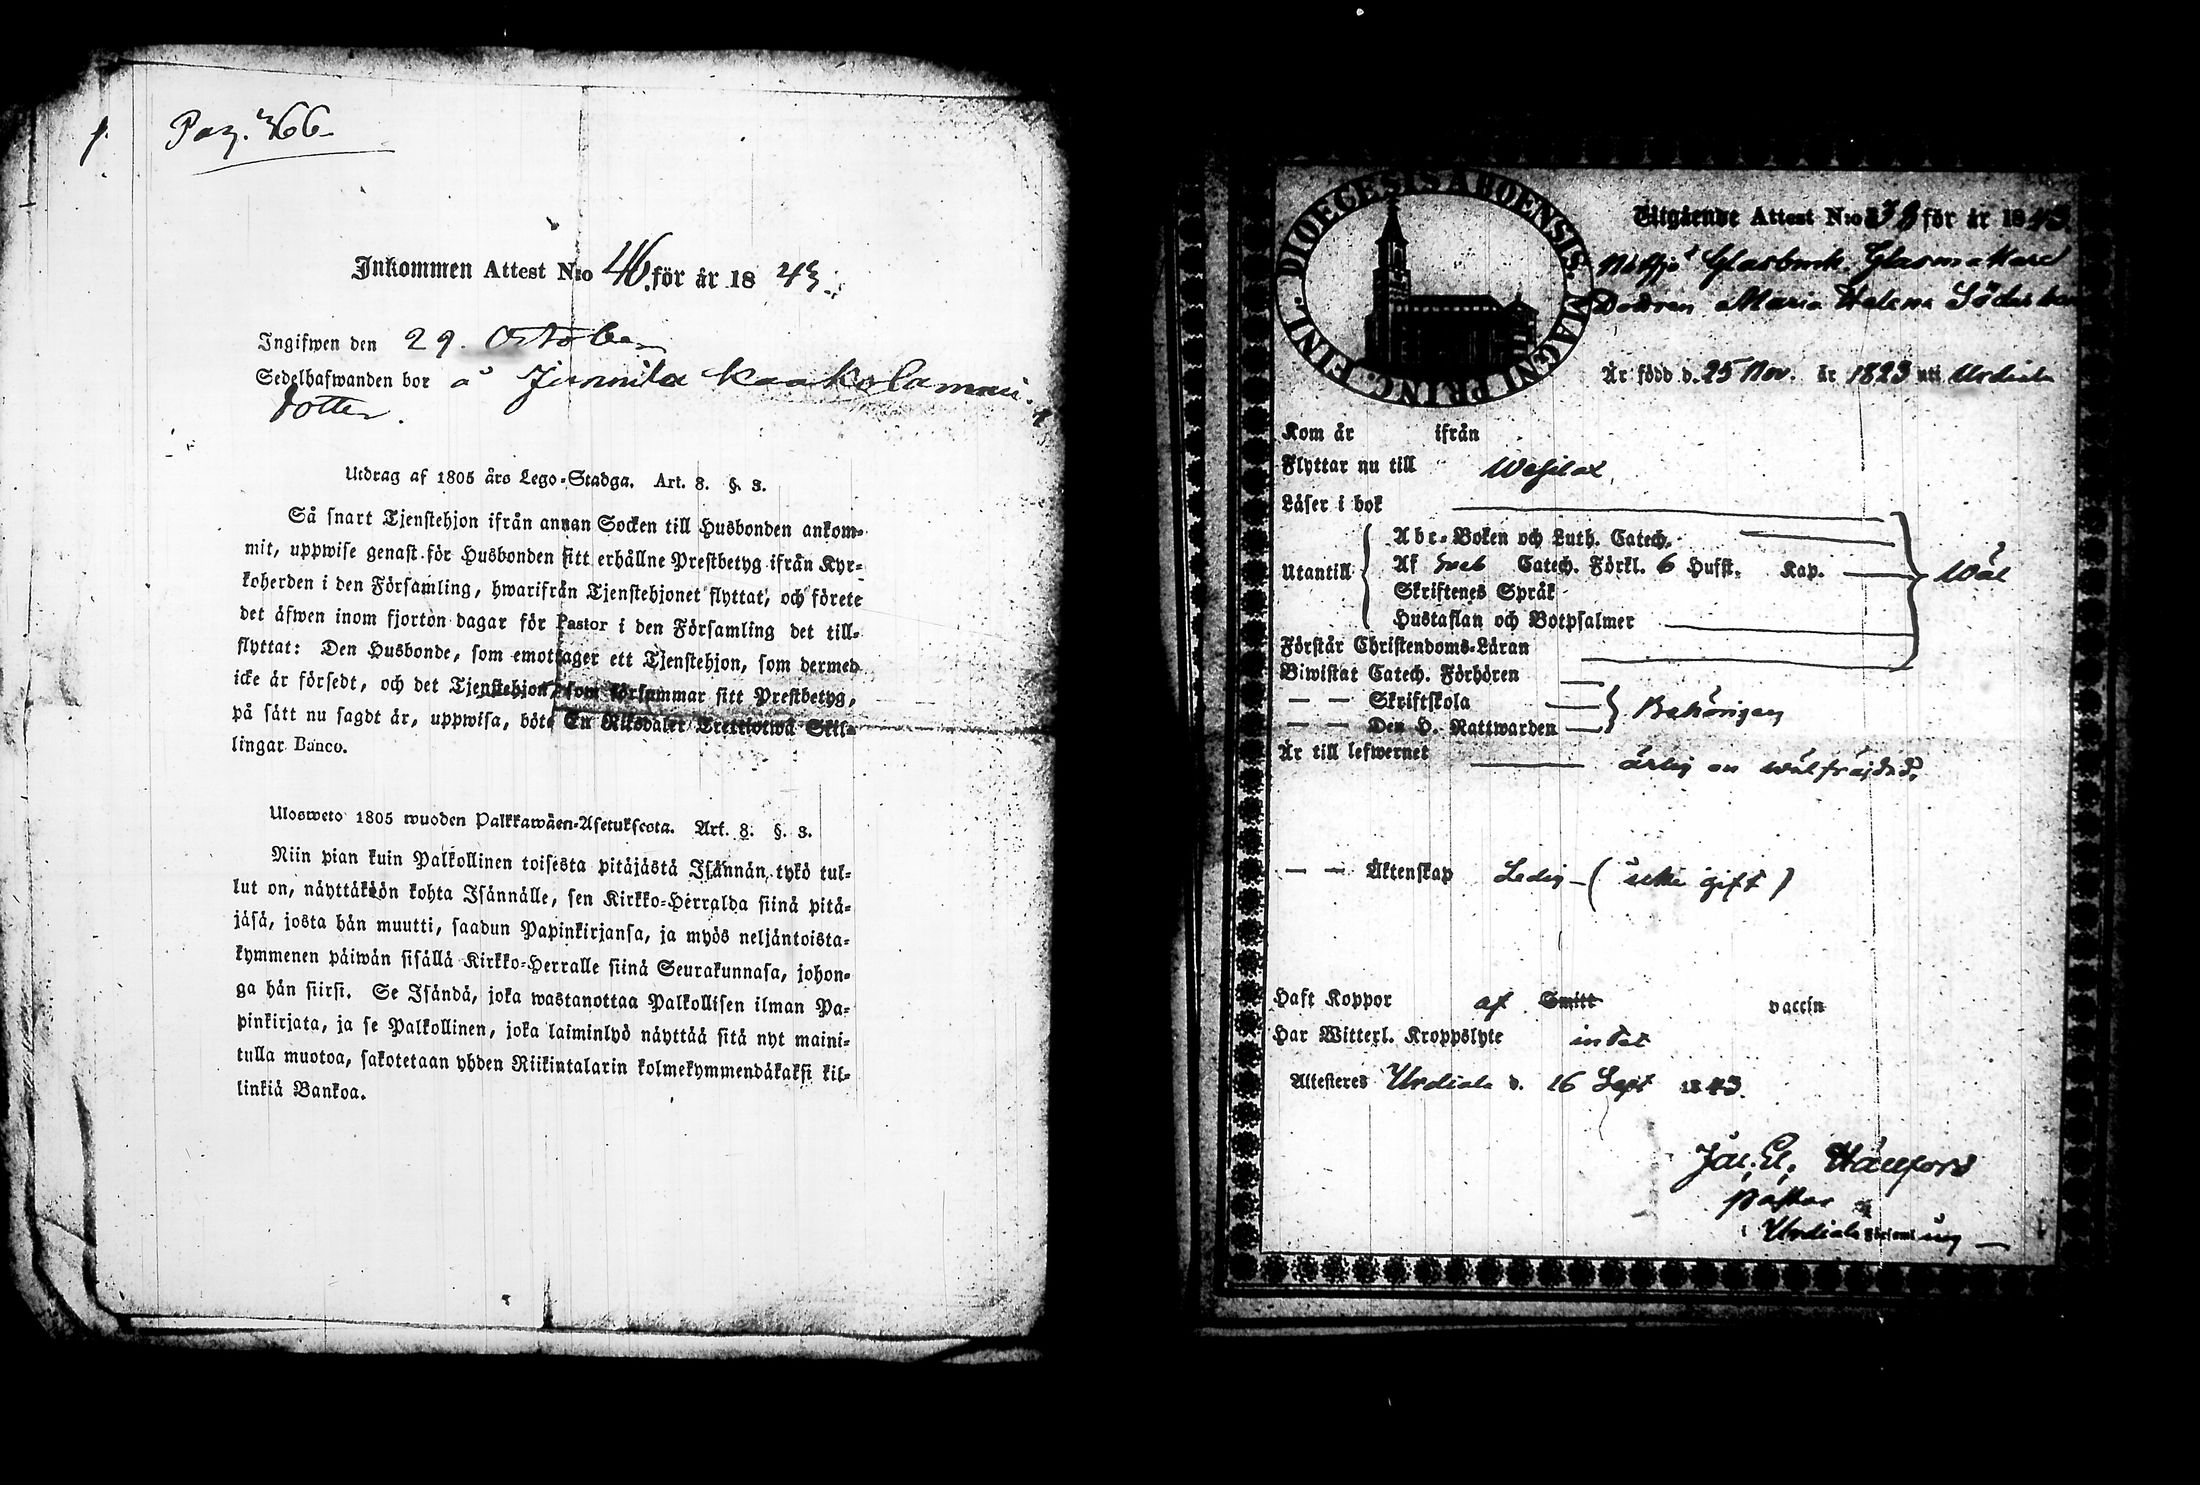 Pag. 366
Inkommen Attest N:o 46. för år 1843.
Ingifwen den 29. October
Sedelhafwanden bor å Junnila Kaakolamäki.
dotter.
Utdrag af 1805 års Lego-Stadga. Art. 8. §. 3.
Så snart Tjenstehjon ifrån annan Socken till Husbonden ankom-
mit, uppwise genast för Husbonden sitt erhållne Prestbetyg ifrån Kyr-
koherden i den Församling, hwarifrån Tjenstehjonet flyttat, och förete
det äfwen inom fjorton dagar för Pastor i den Församling det till-
flyttat: Den Husbonde, som emottager ett Tjenstehjon, som dermed
icke är försedt, och det Tjenstehjon, som försummar sitt Prestbetyg,
på sätt nu sagdt är, uppwisa, böte En Riksdaler Trettiotwå Skil-
lingar Banco.
Ulosweto 1805 wuoden Palkkawäen-Asetuksesta. Art. 8. §. 3.
Niin pian kuin Palkollinen toisesta pitäjästä Isännän tykö tul-
lut on, näyttäkään kohta Isännälle, sen Kirkko-Herralda siinä pitä-
jäsä, josta hän muutti, saadun Papinkirjansa, ja myös neljäntoista-
kymmenen päiwän sisällä Kirkko-Herralle siinä Seurakunnasa, johon-
ga hän siirsi. Se Isändä, joka wastanottaa Palkollisen ilman Pa-
pinkirjata, ja se Palkollinen, joka laiminlyö näyttää sitä nyt maini-
tulla muotoa, sakotetaan yhden Riikintalarin kolmekymmendäkaksi kil-
linkiä Bankoa.
DIOECESIS ABOENSIS. MAGNI PRINC. FINL.
Utgående Attest N:o för år 1843.
Glasbruk. Glasmakare
Dottren Maria Helena Söder
Är född d. 25 Nov. år 1823 uti Urdiala
Kom år ifrån
Flyttar nu till Wesilax
Läser i bok
Abc-Boken och Luth. Catech.
Utantill Af Catech. Förkl. 6 Hufst. Kap. Wäl
Skriftenes Språk
Hustaflan och Botpsalmer
Förstår Christendoms-Läran
Biwistat Catech. Förhören
— — Skriftskola Behörigen
— — Den H. Nattwarden
Är till lefwernet ärlig och wälfräjdad.
— — Äktenskap Ledig — (icke gift)
Haft Koppor af Smitt vaccin
Har Witterl. Kroppslyte intet
Attesteres Urdiala d. 16 Sept 1843.
Jac. El. Hällfors
Pastor
i Urdiala Församling